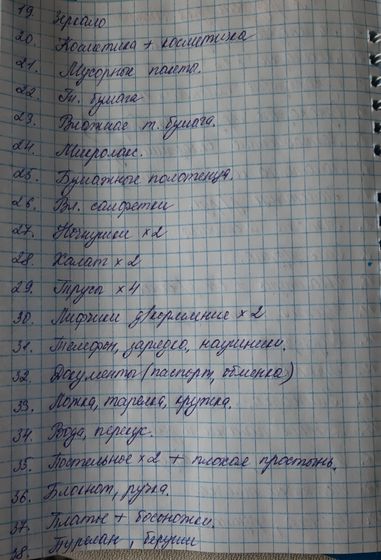 19. Зеркало
20. Косметика + косметичка
21. Мусорные пакеты.
22. Т. бумага
23. Влажная т. бумага.
24. Микролакс.
25. Бумажные полотенца.
26. Вл. салфетки
27. Ночнушки х2
28. Халат х 2
29. Трусы х4
30. Лифчики д/кормление х 2
31. Телефон, зарядка, наушники.
32. Документы (паспорт, обменка)
33. Ложка, тарелка, кружка.
34. Вода, перекус.
35. Постельное х2 + плохая простынь.
36. Блокнот, ручка.
37. Платье + босоножки.
38. беруши